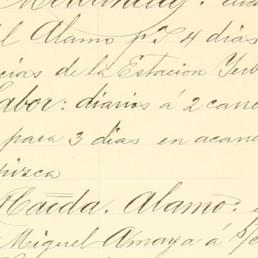 l Alamo p.ª 4 dias
cias de la Estacion Yerb
Labor: diarios á 2 cano
para 3 dias en acan
pizca
Hacda. Alamo:
Miguel Amaya á p/c